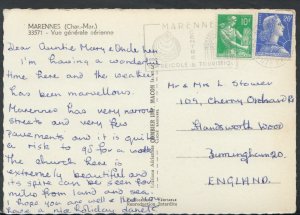 MARENNES (Char.-Mar.)
33571 - Vue générale aérienne
MARENNES
OSTREICOLE & TOURISTIQUE
10F
20F
Dear Auntie Mercy & Uncle Len
I'm having a wonderful
time here and the weather
has been marvellous.
Marennes has very narrow
streets and very few
Pavements and it is quite
a risk to go for a walk
The church here is
extremely beautiful and
its spire can be seen for
miles from land or sea
I hope you are well & that you
have a nice holiday
Mr & Mrs L Stower
109, Cherry Orchard Rd
Handsworth Wood
Birmingham 20.
ENGLAND.